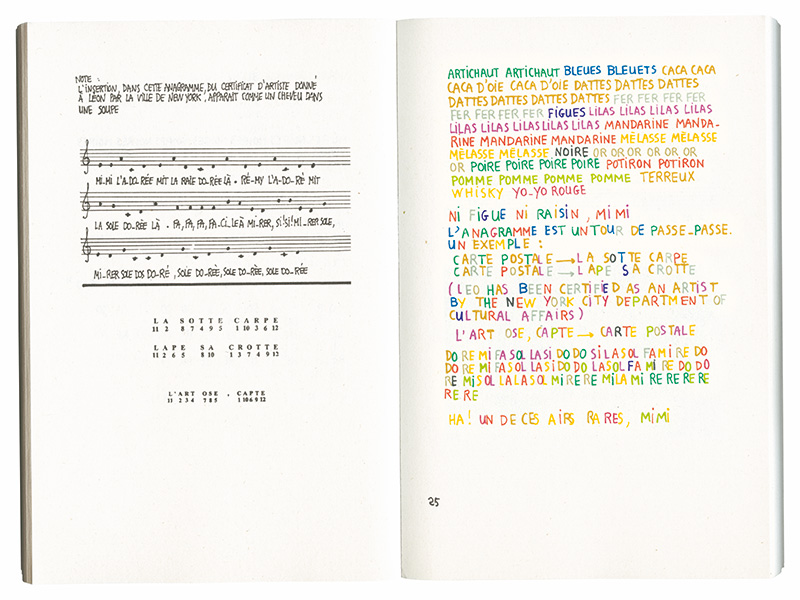 NOTE :
L'INSERTION, DANS CETTE ANAGRAMME, DU CERTIFICAT D'ARTISTE DONNÉ
À LÉON PAR LA VILLE DE NEW YORK, APPARAIT COMME UN CHEVEU DANS
UNE SOUPE
MI.MI L'A.DO.RÉE MIT LA RAIE DO.RÉE LÀ . RÉ-MY L'A-DO-RÉ MIT
LA SOLE DO.RÉE LÀ . FA, FA, FA, FA-CI-LE À MI.RER, SI! SI! MI-RER SOLE,
MI.RER SOLE DOS DO.RÉ, SOLE DO-RÉE, SOLE DO-RÉE, SOLE DO-RÉE
LA SOTTE CARPE
11 2 8 7 4 9 5 1 10 3 6 12
LAPE SA CROTTE
11 2 6 5 8 10 1 3 7 4 9 12
L'ART OSE , CAPTE
11 2 3 4 7 8 5 1 10 6 9 12
ARTICHAUT ARTICHAUT BLEUES BLEUETS CACA CACA
CACA D'OIE CACA D'OIE DATTES DATTES DATTES
DATTES DATTES DATTES DATTES FER FER FER FER
FER FER FER FER FIGUES LILAS LILAS LILAS LILAS
LILAS LILAS LILAS LILAS LILAS MANDARINE MANDA-
RINE MANDARINE MANDARINE MÉLASSE MÉLASSE
MÉLASSE MÉLASSE NOIRE OR OR OR OR OR OR
OR POIRE POIRE POIRE POIRE POTIRON POTIRON
POMME POMME POMME POMME TERREUX
WHISKY YO-YO ROUGE
NI FIGUE NI RAISIN, MIMI
L'ANAGRAMME EST UN TOUR DE PASSE-PASSE.
UN EXEMPLE :
CARTE POSTALE → LA SOTTE CARPE
CARTE POSTALE → LAPE SA CROTTE
(LEO HAS BEEN CERTIFIED AS AN ARTIST
BY THE NEW YORK CITY DEPARTMENT OF
CULTURAL AFFAIRS)
L'ART OSE, CAPTE → CARTE POSTALE
DO RE MI FA SOL LA SI DO DO SI LA SOL FA MI RE DO
DO RE MI FA SOL LA SI DO DO LA SOL FA MI RE DO DO
RE MI SOL LA LA SOL MI RE RE MI LA MI RE RE RE RE
RE RE
HA! UN DE CES AIRS RARES, MIMI
25